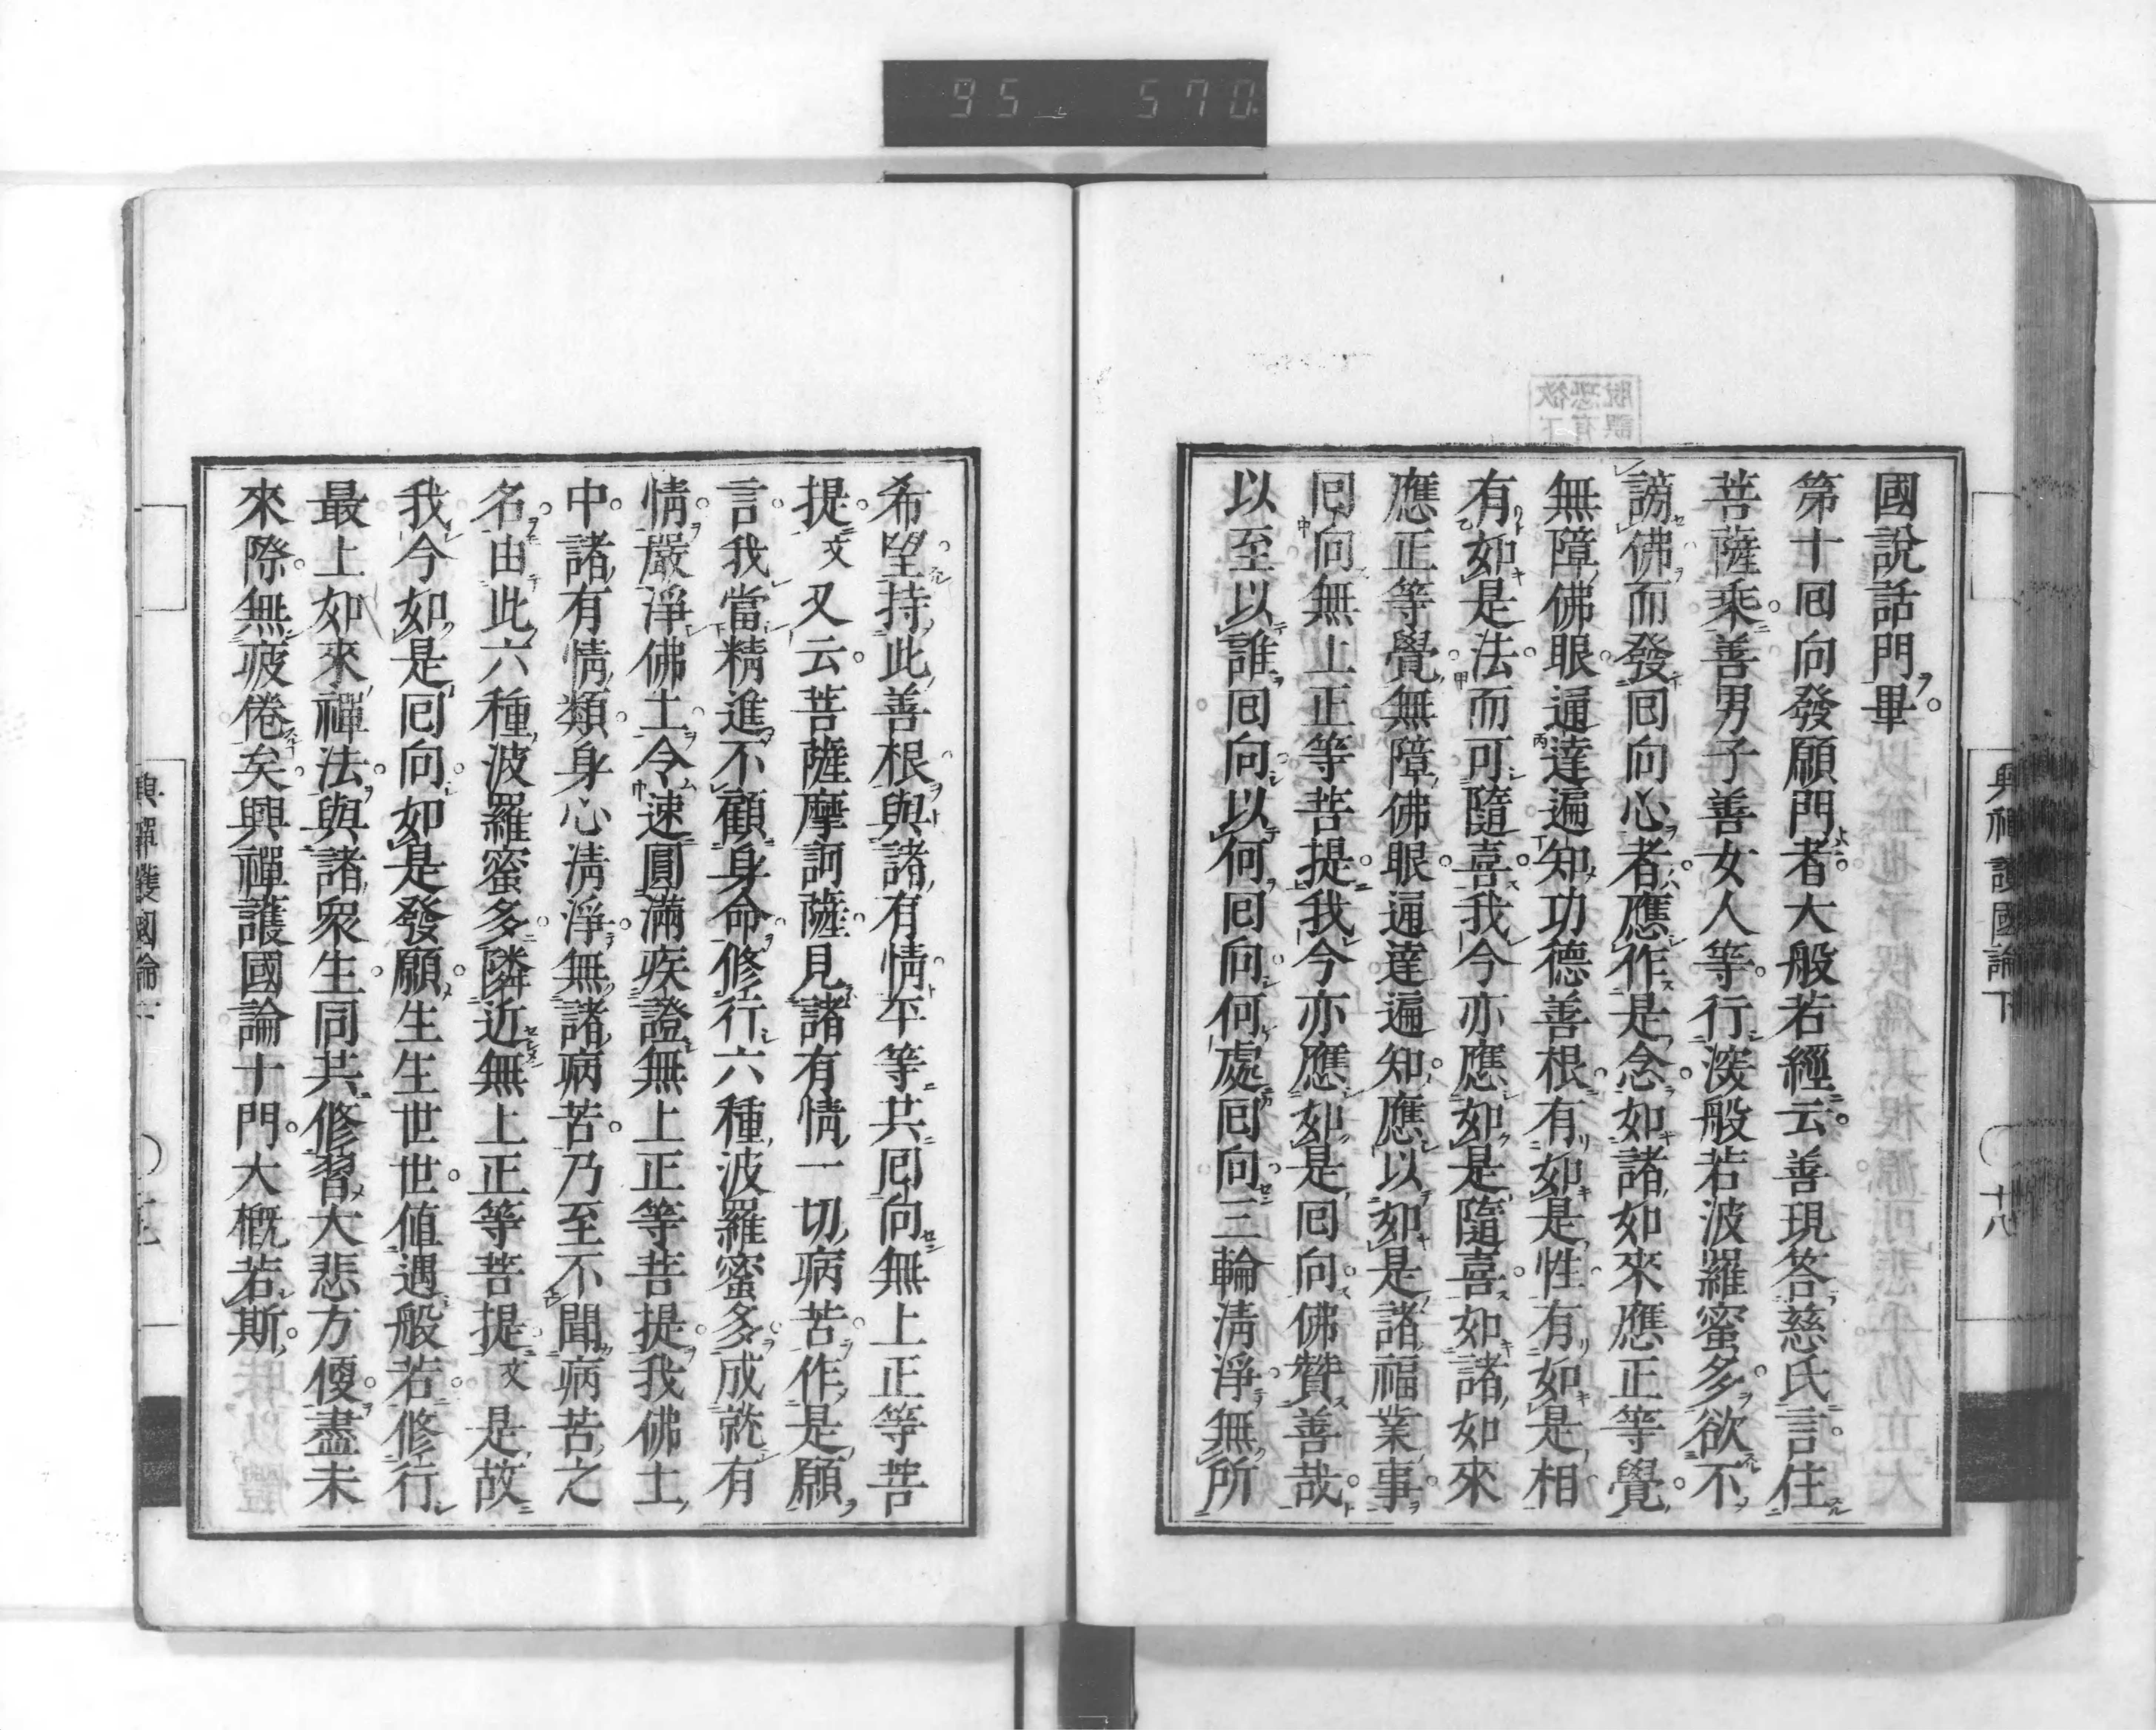 95 570
國說話門畢
第十囘向發願門者大般若經云善現答慈氏言住
菩薩乘善男子善女人等行深般若波羅蜜多欲不
謗佛而發囘向心者應作是念如諸如來應正等覺
無障佛眼通達遍知功德善根有如是性有如是相
有如是法而可隨喜我今亦應如是隨喜如諸如來
應正等覺無障佛眼通達遍知應以如是諸福業事
囘向無上正等菩提我今亦應如是囘向佛贊善哉
以至以誰囘向以何囘向何處囘向三輪淸淨無所
興禪護國論下
十八
希望持此善根與諸有情平等共囘向無上正等菩
提文又云菩薩摩訶薩見諸有情一切病苦作是願
言我當精進不顧身命修行六種波羅蜜多成就有
情嚴淨佛土令速圓滿疾證無上正等菩提我佛土
中諸有情類身心淸淨無諸病苦乃至不聞病苦之
名由此六種波羅蜜多隣近無上正等菩提文是故
我今如是囘向如是發願生生世世値遇般若修行
最上如來禪法與諸衆生同共修習大悲方便盡未
來際無疲倦矣興禪護國論十門大槪若斯